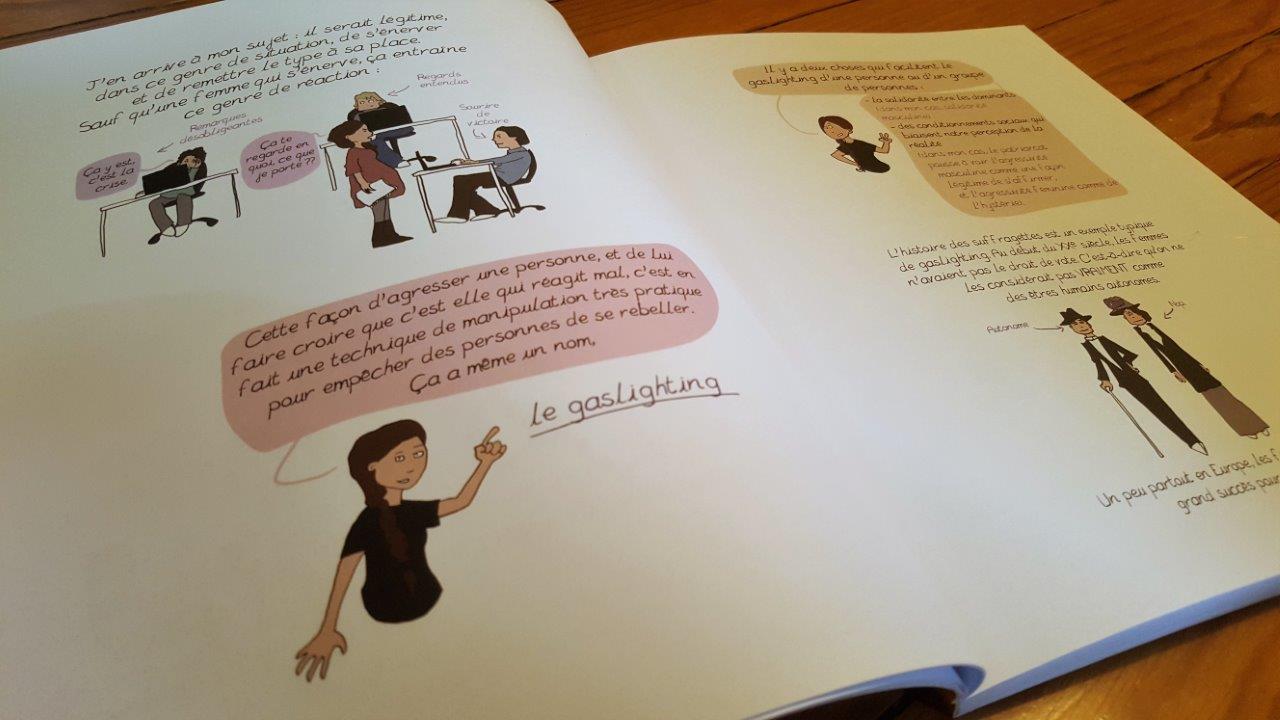 J'en arrive à mon sujet : il serait légitime,
dans ce genre de situation, de s'énerver
et de remettre le type à sa place.
Sauf qu'une femme qui s'énerve, ça entraine
ce genre de réaction :
Remarques
désobligeantes
Regards
entendus
Sourire
de
victoire
Ça y est,
c'est la
crise.
Ça te
regarde en
quoi, ce que
je porte ??
Cette façon d'agresser une personne, et de lui
faire croire que c'est elle qui réagit mal, c'est en
fait une technique de manipulation très pratique
pour empêcher des personnes de se rebeller.
Ça a même un nom,
le gaslighting
Il y a deux choses qui facilitent le
gaslighting d'une personne ou d'un groupe
de personnes :
- la solidarité entre les dominants
(dans mon cas, solidarité
masculine)
- des conditionnements sociaux qui
biaisent notre perception de la
réalité
(dans mon cas, le patriarcat
pousse à voir l'agressivité
masculine comme une façon
légitime de s'affirmer,
et l'agressivité féminine comme de
l'hystérie).
L'histoire des suffragettes est un exemple typique
de gaslighting. Au début du XXe siècle, les femmes
n'avaient pas le droit de vote. C'est-à-dire qu'on ne
les considérait pas VRAIMENT comme
des êtres humains autonomes.
Autonome
Nop
Un peu partout en Europe, les f
grand succès pour